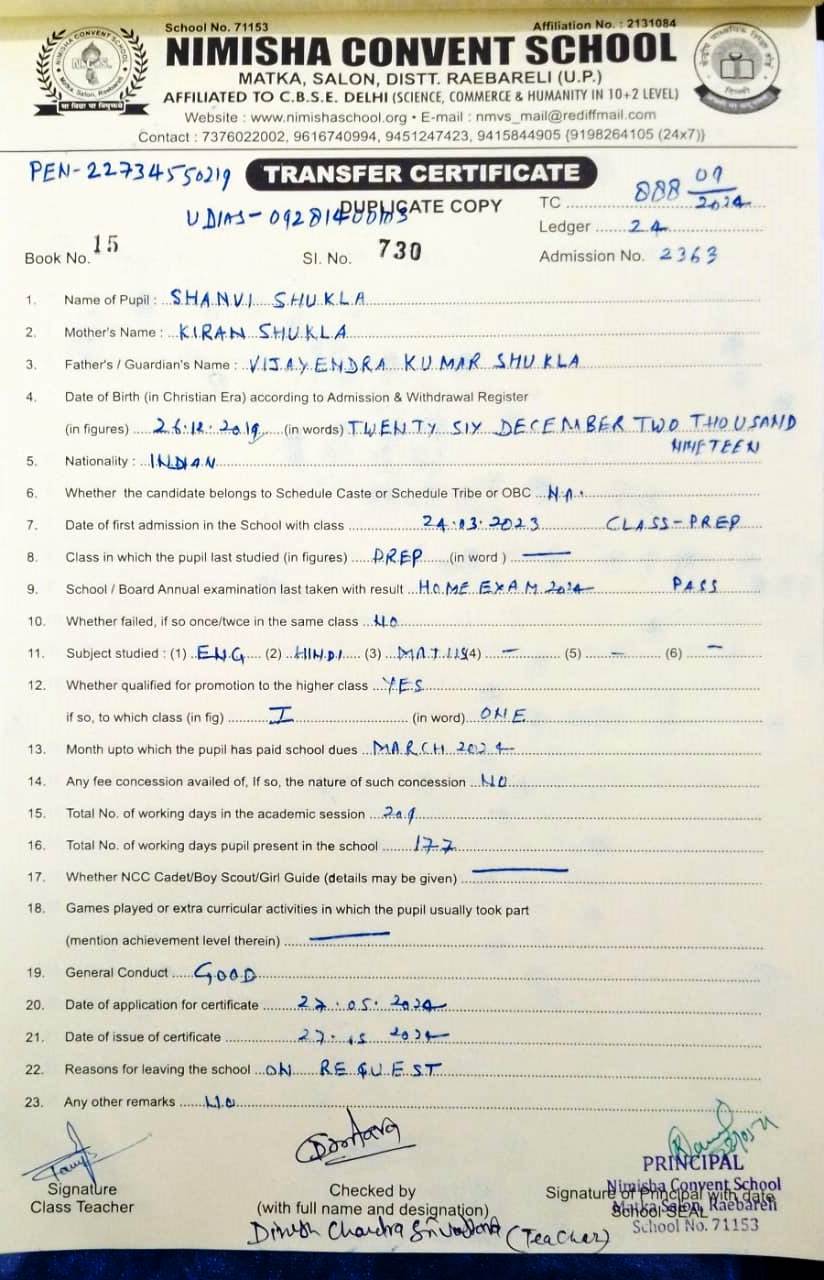 School No. 71153 Affiliation No. : 2131084
NIMISHA CONVENT SCHOOL
MATKA, SALON, DISTT. RAEBARELI (U.P.)
AFFILIATED TO C.B.S.E. DELHI (SCIENCE, COMMERCE & HUMANITY IN 10+2 LEVEL)
Website : www.nimishaschool.org • E-mail : nmvs_mail@rediffmail.com
Contact : 7376022002, 9616740994, 9451247423, 9415844905 {9198264105 (24x7)}
PEN-22734550219 TRANSFER CERTIFICATE
DUPLICATE COPY TC 888 09/2024
UDIAS-
Ledger 24
Book No. 15 Sl. No. 730 Admission No. 2363
1. Name of Pupil : SHANVI SHUKLA
2. Mother's Name : KIRAN SHUKLA
3. Father's / Guardian's Name : VIJAYENDRA KUMAR SHUKLA
4. Date of Birth (in Christian Era) according to Admission & Withdrawal Register
(in figures) 26.12.2019 (in words) TWENTY SIX DECEMBER TWO THOUSAND
NINETEEN
5. Nationality : INDIAN
6. Whether the candidate belongs to Schedule Caste or Schedule Tribe or OBC
7. Date of first admission in the School with class 24.03.2023 CLASS-PREP
8. Class in which the pupil last studied (in figures) PREP (in word) —
9. School / Board Annual examination last taken with result HOME EXAM 2024 PASS
10. Whether failed, if so once/twce in the same class NO
11. Subject studied : (1) ENG (2) HINDI (3) MATHS (4) – (5) – (6) –
12. Whether qualified for promotion to the higher class YES
if so, to which class (in fig) I (in word) ONE
13. Month upto which the pupil has paid school dues MARCH 2024
14. Any fee concession availed of, If so, the nature of such concession NO
15. Total No. of working days in the academic session 209
16. Total No. of working days pupil present in the school 177
17. Whether NCC Cadet/Boy Scout/Girl Guide (details may be given) —
18. Games played or extra curricular activities in which the pupil usually took part
(mention achievement level therein) —
19. General Conduct GOOD
20. Date of application for certificate 27.05.2024
21. Date of issue of certificate 27. 2024
22. Reasons for leaving the school ON REQUEST
23. Any other remarks NO
PRINCIPAL
Signature Checked by Nimisha Convent School
Class Teacher (with full name and designation) Signature of Principal with date
Matka Salon, Raebareli
School SEAL
Dinesh Chandra Srivastava (Teacher) School No. 71153